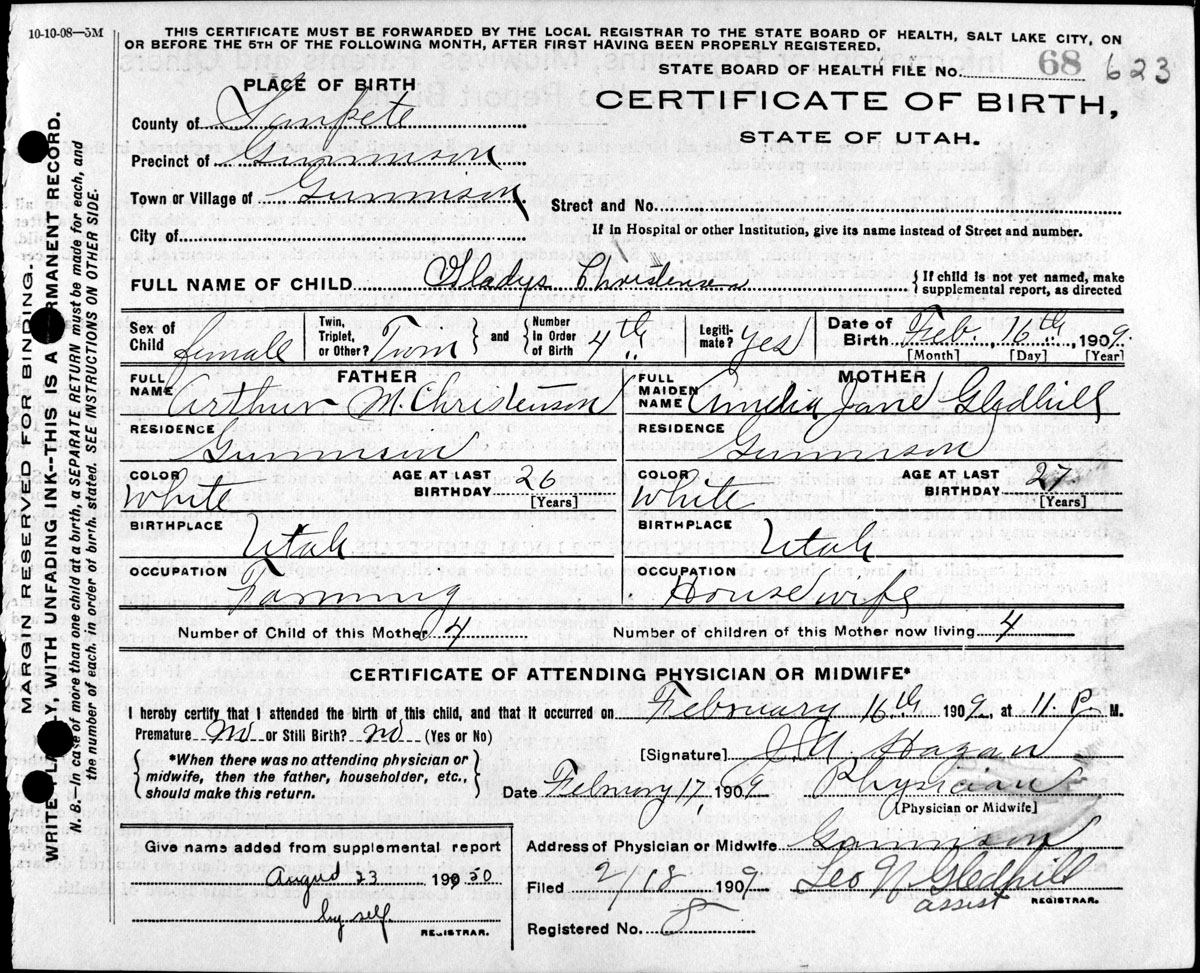 10-10-08—5M
THIS CERTIFICATE MUST BE FORWARDED BY THE LOCAL REGISTRAR TO THE STATE BOARD OF HEALTH, SALT LAKE CITY, ON
OR BEFORE THE 5TH OF THE FOLLOWING MONTH, AFTER FIRST HAVING BEEN PROPERLY REGISTERED.
STATE BOARD OF HEALTH FILE No. 68 623
PLACE OF BIRTH
CERTIFICATE OF BIRTH,
STATE OF UTAH.
County of Sanpete
Precinct of Gunnison
Town or Village of Gunnison
Street and No.
City of
If in Hospital or other Institution, give its name instead of Street and number.
FULL NAME OF CHILD Gladys Christensen
{ If child is not yet named, make
supplemental report, as directed
Sex of Child female
Twin, Triplet, or Other? Twin } and { Number In Order of Birth 4th
Legitimate? Yes
Date of Birth Feb. 16th 1909.
[Month] [Day] [Year]
FATHER
FULL NAME Arthur M. Christenson
RESIDENCE
Gunnison
COLOR White
AGE AT LAST BIRTHDAY 26 [Years]
BIRTHPLACE
Utah
OCCUPATION
Farming
MOTHER
FULL MAIDEN NAME Amelia Jane Gledhill
RESIDENCE
Gunnison
COLOR White
AGE AT LAST BIRTHDAY 27 [Years]
BIRTHPLACE
Utah
OCCUPATION
Housewife
Number of Child of this Mother 4
Number of children of this Mother now living 4
CERTIFICATE OF ATTENDING PHYSICIAN OR MIDWIFE*
I hereby certify that I attended the birth of this child, and that it occurred on February 16th 1909, at 11. P. M.
Premature No or Still Birth? No (Yes or No)
{ *When there was no attending physician or
midwife, then the father, householder, etc.,
should make this return. }
[Signature] J. A. Hagan
Date February 17, 1909 Physician
[Physician or Midwife]
Give name added from supplemental report
August 23 1930
by self
REGISTRAR.
Address of Physician or Midwife Gunnison
Filed 2/18 1909 Leo N Gledhill
assist REGISTRAR.
Registered No. 8
MARGIN RESERVED FOR BINDING.
WRITE WITH UNFADING INK--THIS IS A PERMANENT RECORD.
N. B.—In case of more than one child at a birth, a SEPARATE RETURN must be made for each, and
the number of each, in order of birth, stated. SEE INSTRUCTIONS ON OTHER SIDE.